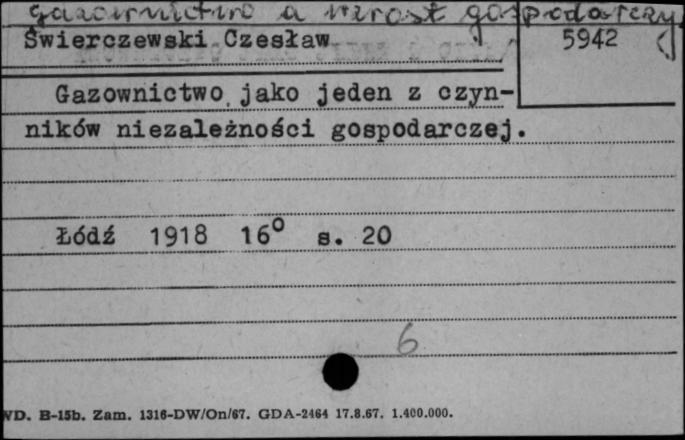 gazownictwo a wzrost gospodarczy
Świerczewski Czesław
5942
Gazownictwo jako jeden z czyn-
ników niezależności gospodarczej.
Łódź 1918 16° s. 20
6
WD. B-15b. Zam. 1316-DW/On/67. GDA-2464 17.8.67. 1.400.000.